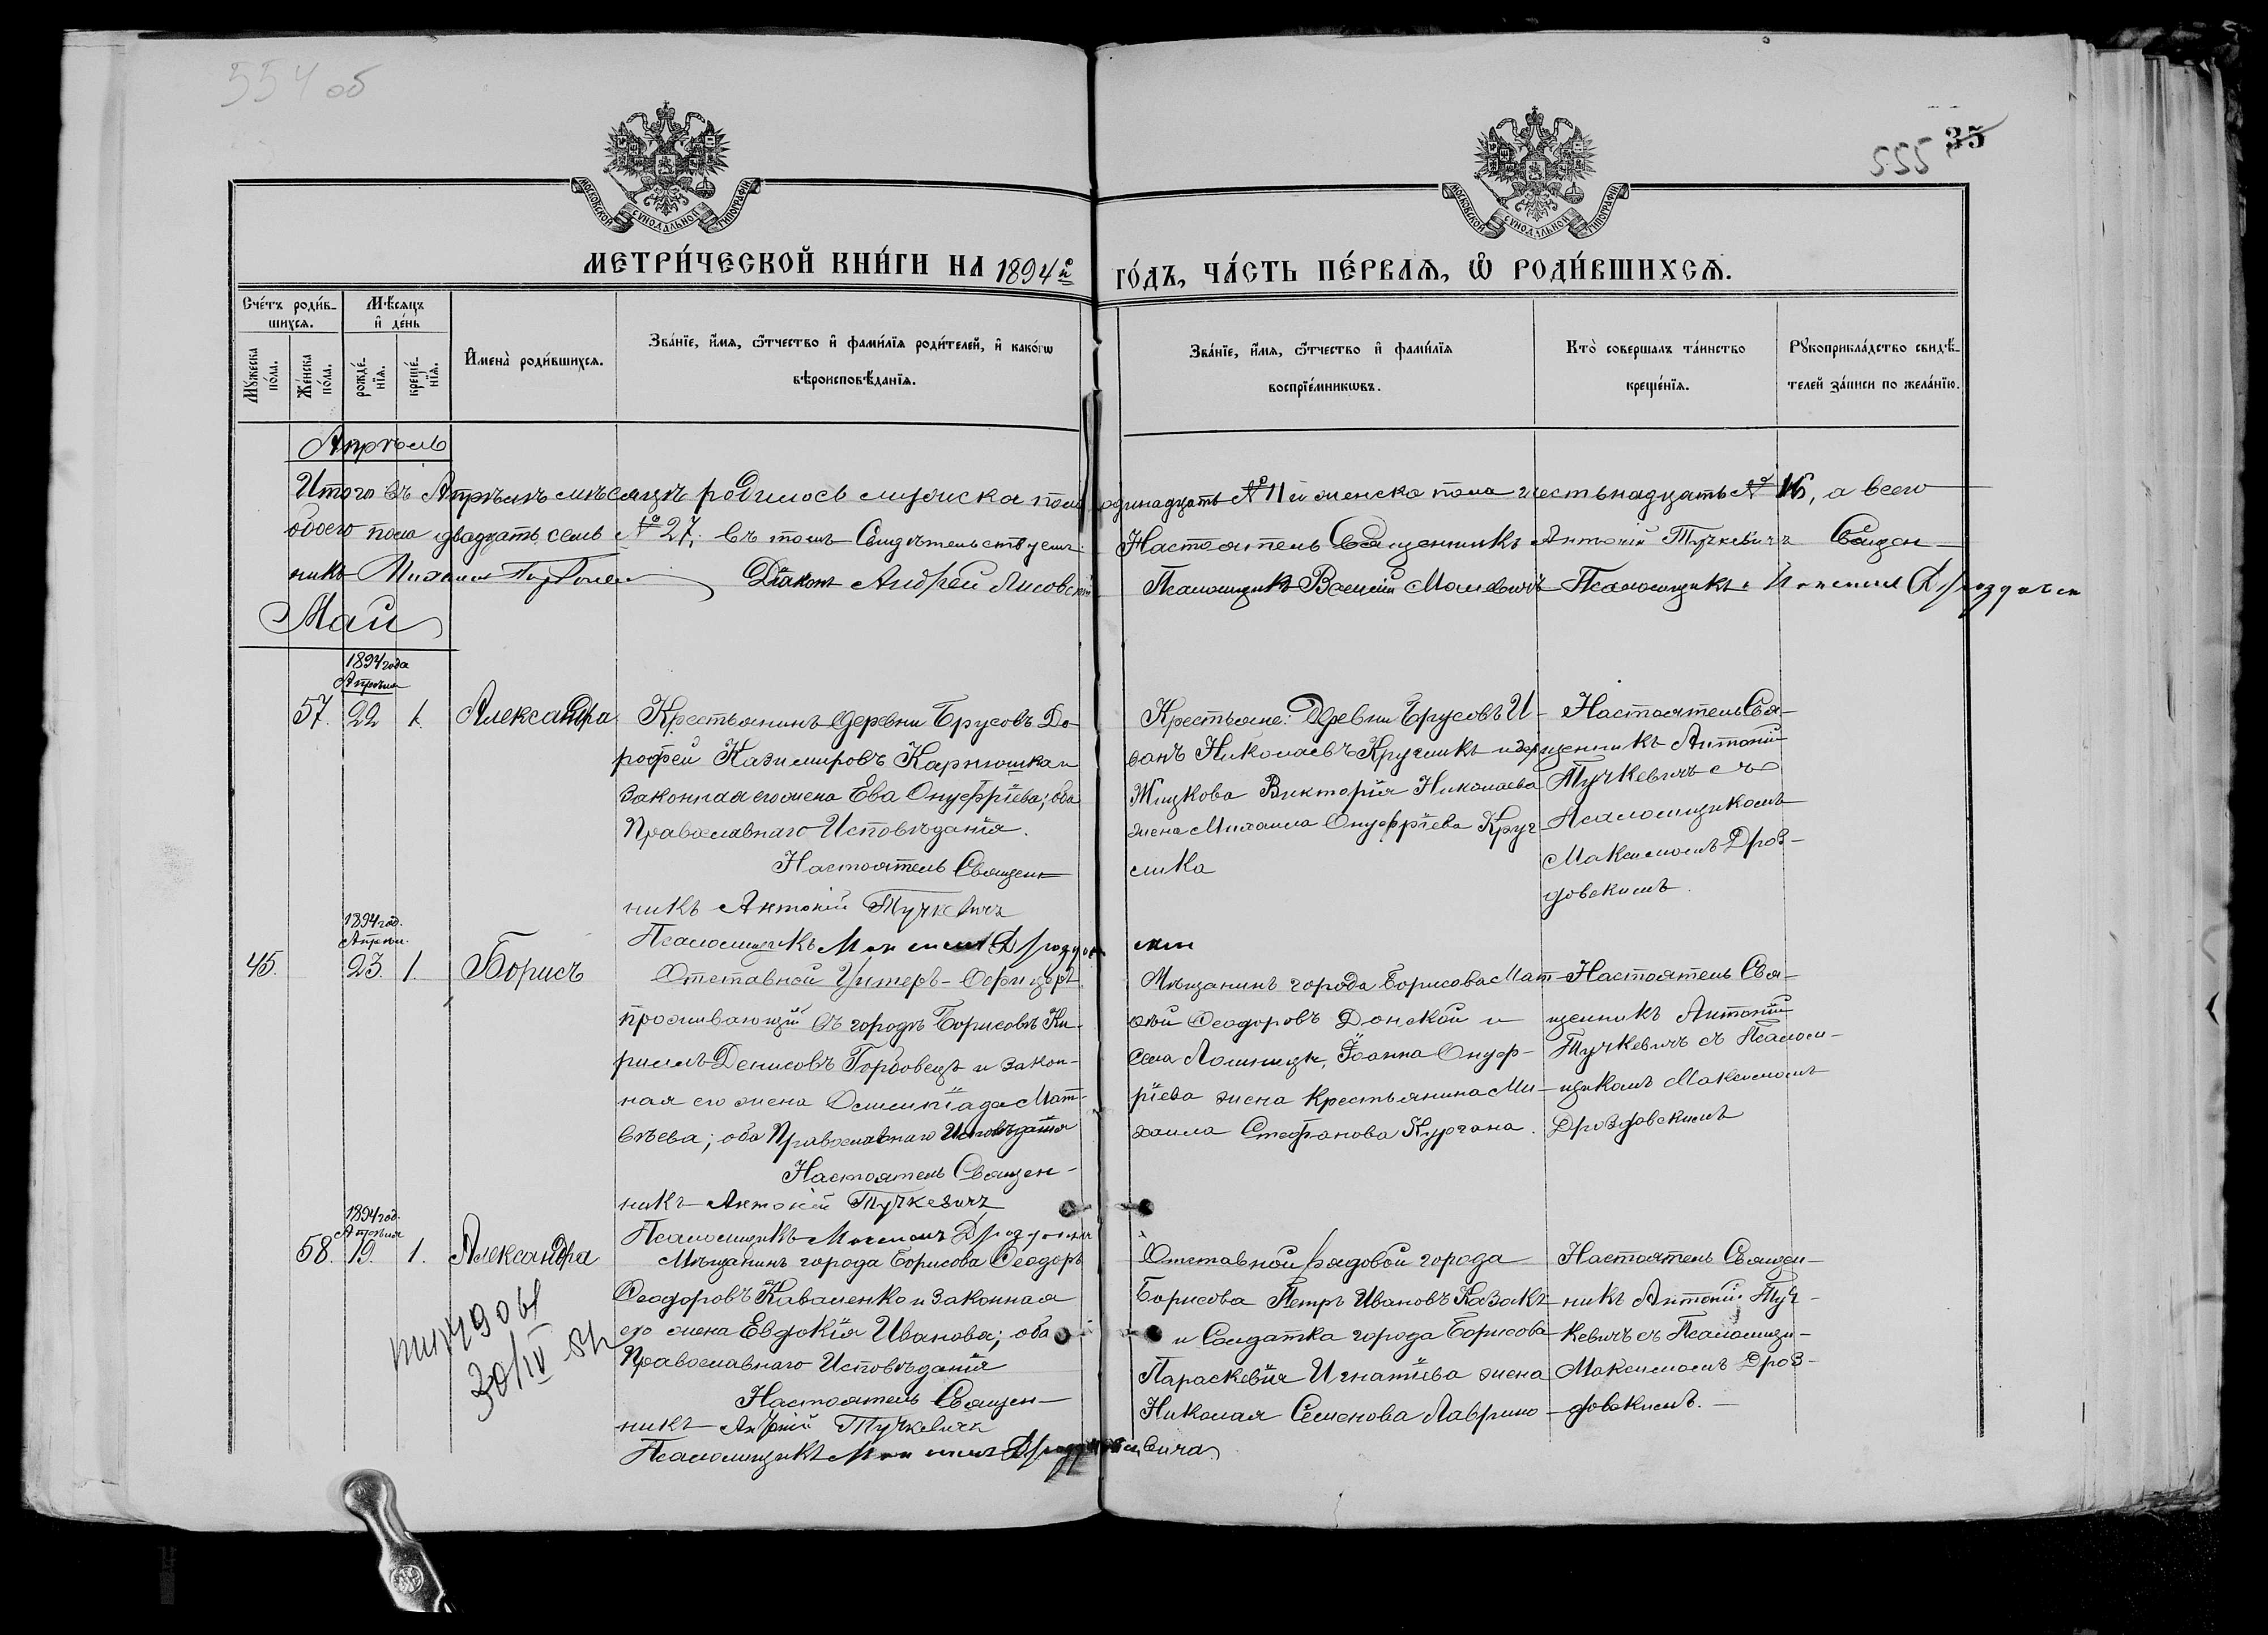 554 об
35
555
МОСКОВСКОЙ СѴНОДАЛЬНОЙ ТИПОГРАФІИ
МОСКОВСКОЙ СѴНОДАЛЬНОЙ ТИПОГРАФІИ
МЕТРИ́ЧЕСКОЙ КНИ́ГИ НА 1894й ГО́ДЪ, ЧА́СТЬ ПЕ́РВАЯ, Ѿ РОДИ́ВШИХСЯ.
Сче́тъ роди́в-
шихся.
Мѣ́сяцъ
и҆ де́нь
Мꙋ́жеска по́ла.
Же́нска по́ла.
рожде́-нїя.
креще́-нїя.
И҆мена̀ роди́вшихся.
Зва́нїе, и҆́мя, ѻ҆́тчество и҆ фами́лїя роди́телей, и҆ како́гѡ
вѣроисповѣ́данїя.
Зва́нїе, и҆́мя, ѻ҆́тчество и҆ фами́лїя
воспрїе́мникѡвъ.
Кто̀ соверша́лъ та́инство
креще́нїя.
Рꙋкоприкла́дство свидѣ́-
телей за́писи по жела́нїю.
Апрѣль
Итого въ Апрѣлѣ мѣсяцѣ родилось мужска пола одинадцать № 11 и женска пола шестьнадцать № 16, а всего
обоего пола двадцать семь № 27; въ томъ Свидѣтельствуемъ: Настоятель Священникъ Антоній Тучкевичъ Священ-
никъ Михаилъ Діаконъ Андрей Лисовскій Псаломщикъ Василій Псаломщикъ Максимъ Дроздовскій
Май
1894 года
Апрѣля
57. 22 1. Александра
Крестьянинъ деревни Брусовъ До-
рофей Казимировъ Карнюшка и
законная его жена Ева Онуфріева; оба
Православнаго Исповѣданія.
Настоятель Священ-
никъ Антоній Тучкевичъ
Псаломщикъ Максимъ Дроздовскій
Крестьяне: Деревни Брусовъ И-
ванъ Николаевъ Кругликъ и дер.
Жицкова Викторія Николаева
жена Михаила Онуфріева Круг-
лика
Настоятель Свя-
щенникъ Антоній
Тучкевичъ съ
Псаломщикомъ
Максимомъ Дроз-
довскимъ.
1894 год.
Апрѣля.
45. 23. 1. Борисъ
Отставной Унтеръ-Офицеръ
проживающій въ городѣ Борисовѣ Ки-
риллъ Денисовъ Горбовецъ и закон-
ная его жена Олимпіада Мат-
вѣева; оба Православнаго Исповѣданія
Настоятель Священ-
никъ Антоній Тучкевичъ
Псаломщикъ Максимъ Дроздовскій
Мѣщанинъ города Борисова Мат-
ѳей Ѳеодоровъ Донской и
села Лошницы, Іоанна Онуф-
ріева жена крестьянина Ми-
хаила Стефанова Кургана.
Настоятель Свя-
щенникъ Антоній
Тучкевичъ съ Псалом-
щикомъ Максимомъ
Дроздовскимъ
1894 год.
Апрѣля
58. 19. 1. Александра
Мѣщанинъ города Борисова Ѳеодоръ
Ѳеодоровъ Коваленко и законная
его жена Евдокія Иванова; оба
Православнаго Исповѣданія
Настоятель Священ-
никъ Антоній Тучкевичъ
Псаломщикъ Максимъ Дроздовскій
Отставной рядовой города
Борисова Петръ Ивановъ Казакъ
и Солдатка города Борисова
Параскевія Игнатіева жена
Николая Семенова Лаврино-
вича.
Настоятель Священ-
никъ Антоній Туч-
кевичъ съ Псаломщи-
Максимомъ Дроз-
довскимъ.
30/IV